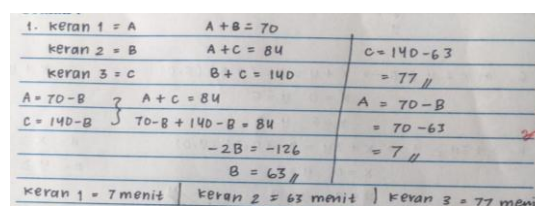 1. keran 1 = A A + B = 70
keran 2 = B A + C = 84
keran 3 = C B + C = 140
A = 70 - B } A + C = 84
C = 140 - B 70 - B + 140 - B = 84
- 2B = -126
B = 63 //
C = 140 - 63
= 77 //
A = 70 - B
= 70 - 63
= 7 //
keran 1 = 7 menit | keran 2 = 63 menit | keran 3 = 77 meni